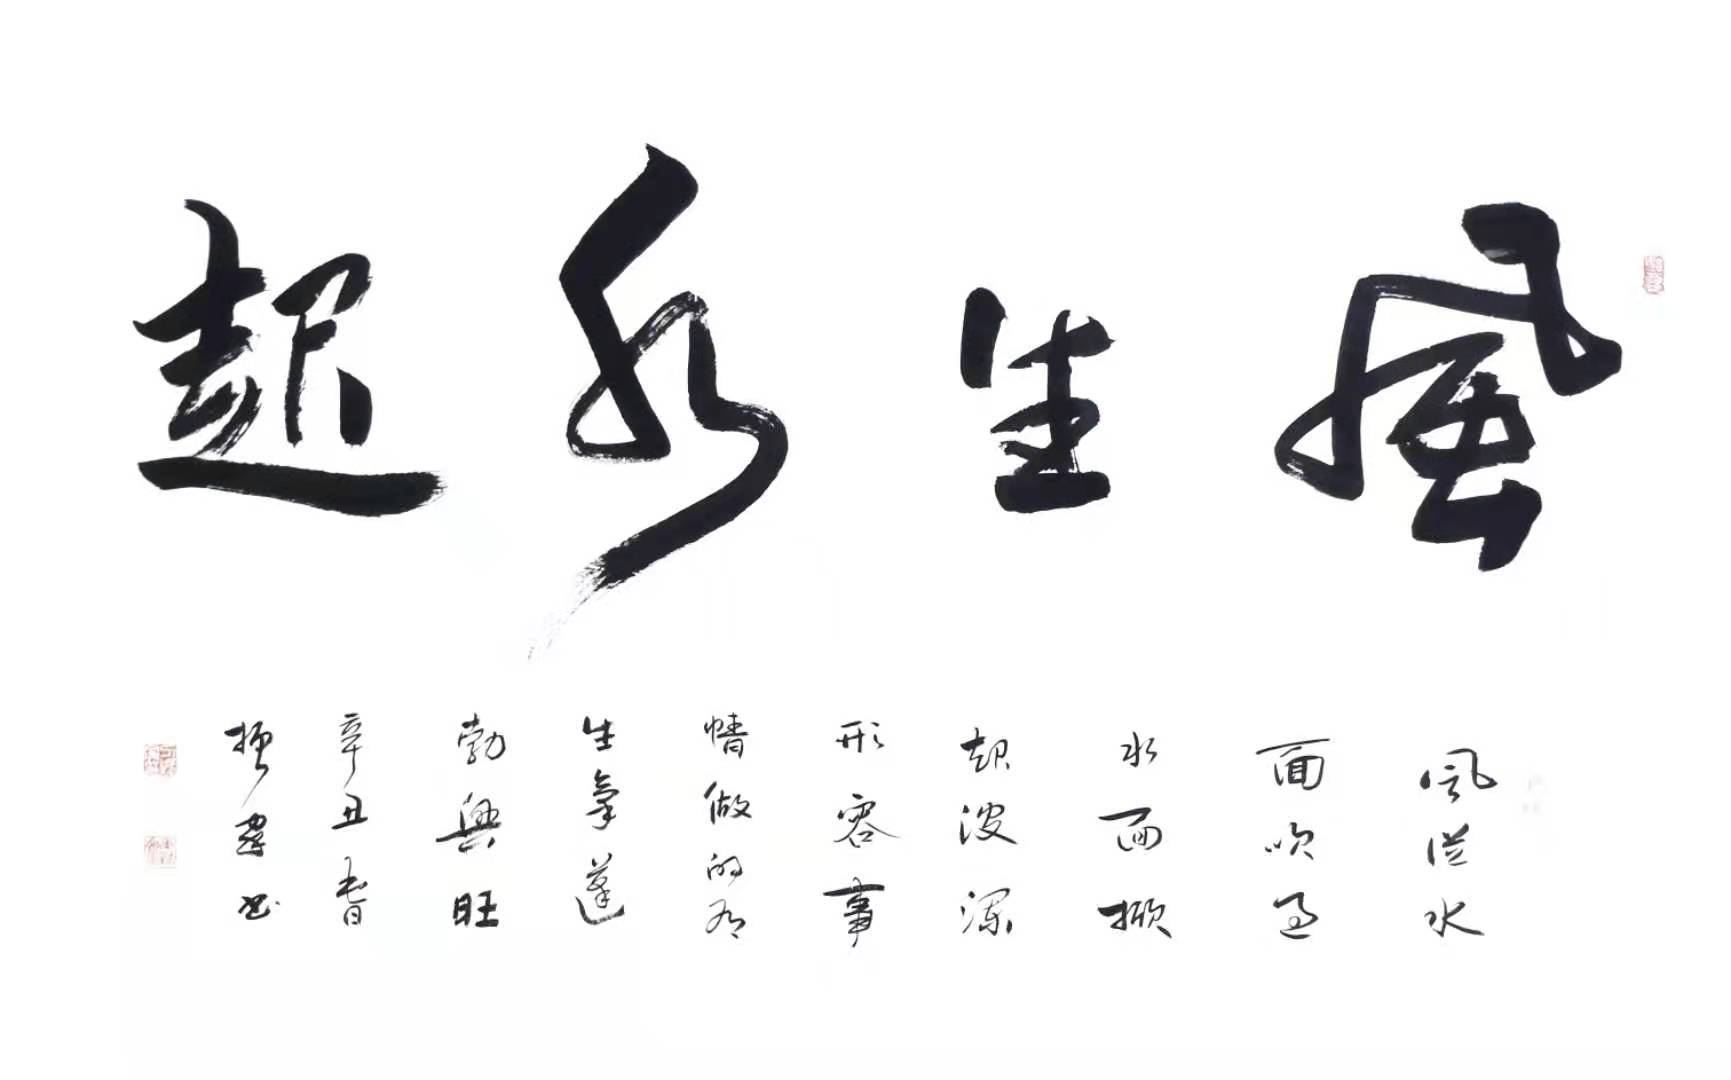 風生水起
風從水
面吹過
水面掀
起波瀾
形容事
情做的有
生氣蓬
勃興旺
辛丑春
振軍书